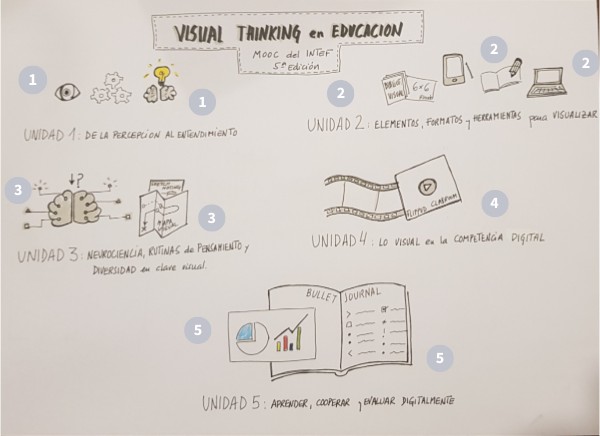 VISUAL THINKING en EDUCACION
MOOC del INTEF
5ª Edición
1
1
UNIDAD 1: DE LA PERCEPCION AL ENTENDIMIENTO
2
2
2
DIARIO VISUAL
6x6
UNIDAD 2: ELEMENTOS, FORMATOS y HERRAMIENTAS para VISUALIZAR
3
?
3
UNIDAD 3: NEUROCIENCIA, RUTINAS de PENSAMIENTO y
DIVERSIDAD en clave visual.
FLIPPED CLASSROOM
4
UNIDAD 4: LO VISUAL en la COMPETENCIA DIGITAL
BULLET JOURNAL
5
5
UNIDAD 5: APRENDER, COOPERAR y EVALUAR DIGITALMENTE